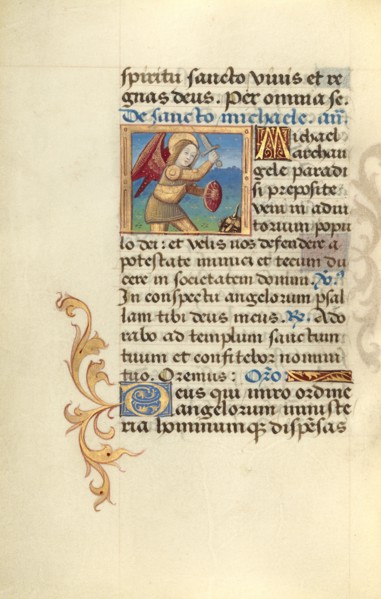 spiritu sancto vivis et re
gnas deus. Per omnia se.
De sancto michaele. an̄.
Michael
archan
gele paradi
si preposite
veni in adiu
torium popu
lo dei: et velis nos defendere a
potestate inimici et tecum du
cere in societatem domini. V̄.
In conspectu angelorum psal
lam tibi deus meus. R̄. Ado
rabo ad templum sanctum
tuum et confitebor nomini
tuo. Oremus: Orō
Deus qui miro ordine
angelorum ministe
ria hominumq̄ dispēsas